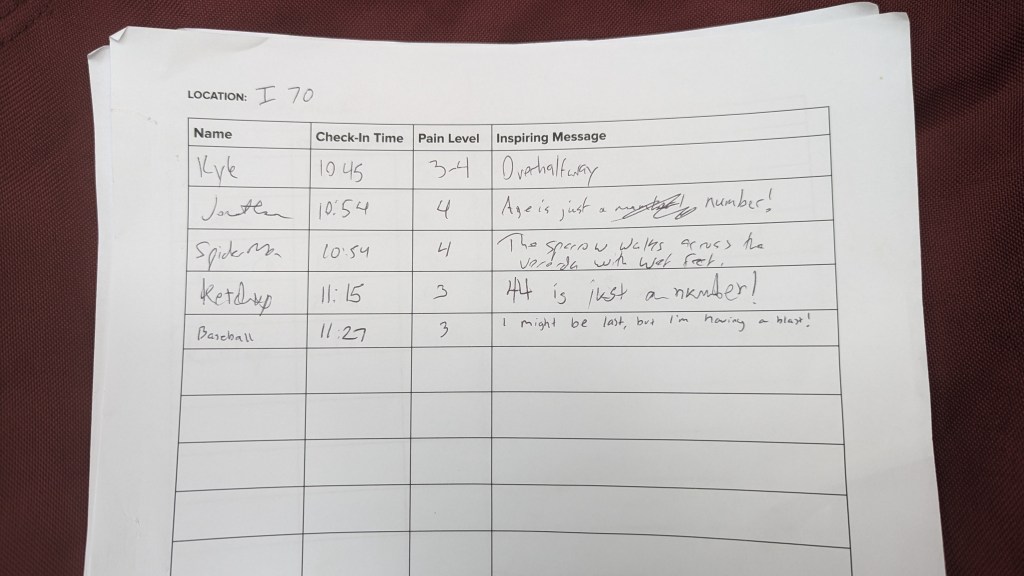 LOCATION: I 70
Name Check-In Time Pain Level Inspiring Message
Kyle 10 45 3-4 Over halfway
10:54 4 Age is just a number!
Spiderman 10:54 4 The sparrow walks across the
veranda with wet feet.
Ketchup 11:15 3 44 is just a number!
Baseball 11:27 3 I might be last, but I'm having a blast!